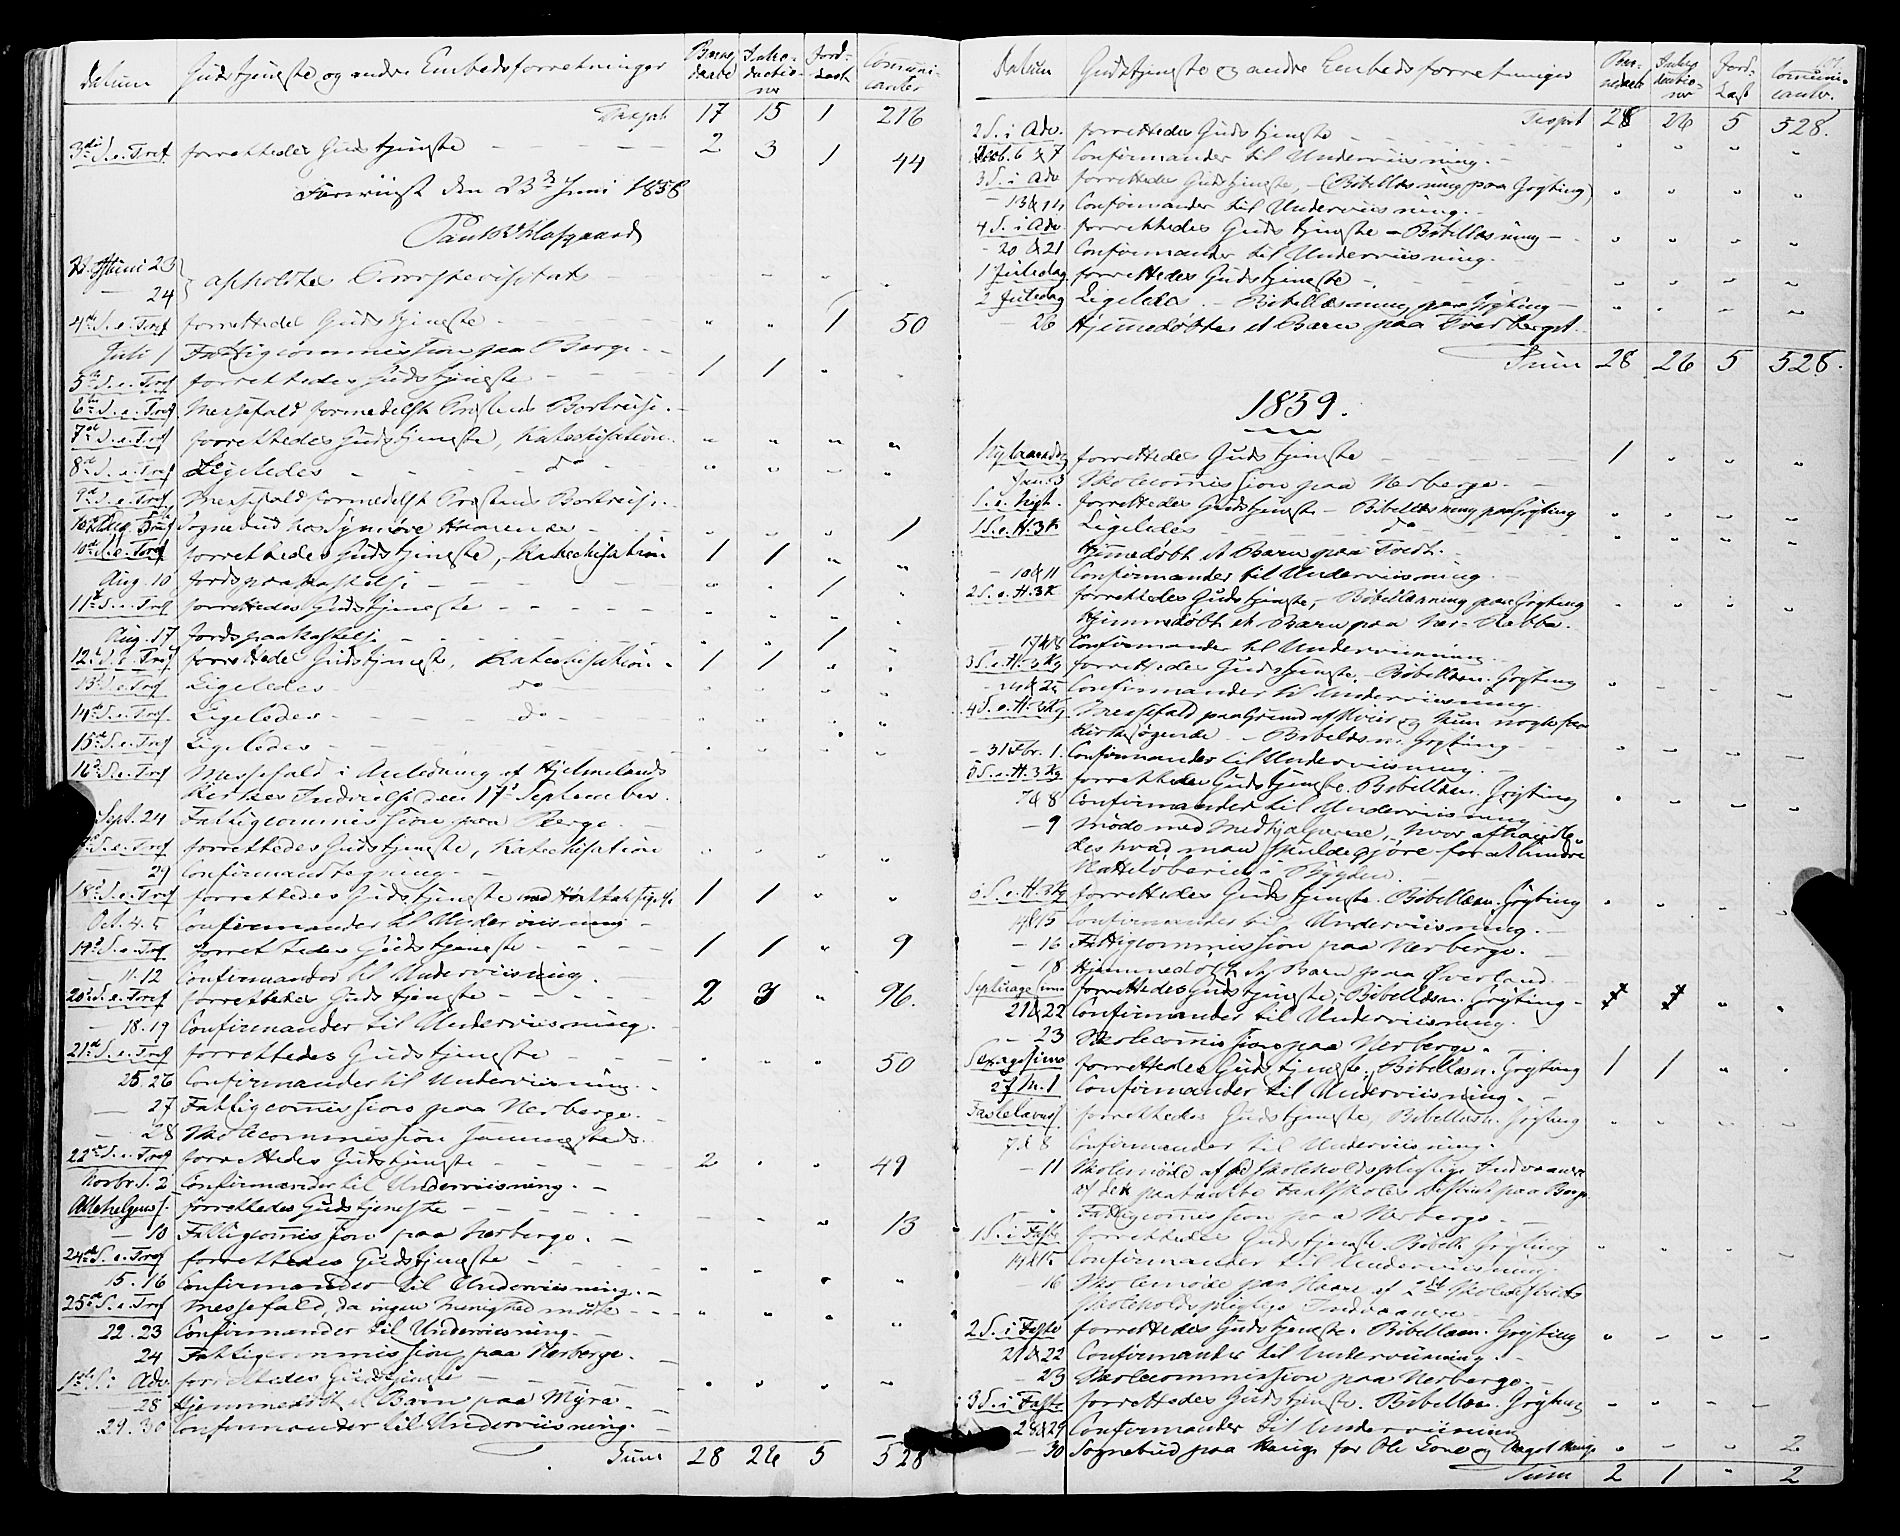 Datum Gudstjeneste og andre Embedsforretninger Barnedaab Introductioner Jordkast Communicanter
Trspt 17 15 1 216
3die S. e. Tref forrettedes Gudstjeneste - - - 2 3 1 44
den 23de Juni 1858
Juni 23
24 afholdtes
4de S. e. Tref forrettedes Gudstjeneste - - - " " 1 50
Juli 1 Fattigcommission paa Berge. -
5te S. e. Tref forrettedes Gudstjeneste - - - 1 1 " "
6te S. e. Tref Messefald formedelst Bortreise. -
7de S. e. Tref forrettedes Gudstjeneste, Katechisation. " " " "
8de S. e. Tref Ligeledes - - - do - " " " "
9de S. e. Tref Messefald formedelst Bortreise. -
Sognebud hos Synnøve - - " " " 1
10de S. e. Tref forrettedes Gudstjeneste, Katechisation 1 1 " "
Aug. 10 Jordspaakastelse - - - " " 1 "
11te S. e. Tref forrettedes Gudstjeneste - - - " " " "
Aug. 17 Jordspaakastelse - - - " " 1 "
12te S. e. Tref forrettedes Gudstjeneste, Katechisation - 1 1 " "
13de S. e. Tref Ligeledes - - do - " " " "
14de S. e. Tref Ligeledes - - - do - " " " "
15de S. e. Tref Ligeledes - - - " " " "
16de S. e. Tref Messefald i Anledning af Hjelmelands
Kirkes Indvielse den 17de September.
Sept. 24 Fattigcommission paa Berge. -
S. e. Tref forrettedes Gudstjeneste, Katechisation " " " "
29 Confirmandtegning. -
18de S. e. Tref forrettedes Gudstjeneste med 1 1 " "
Oct. 4. 5 Confirmander til Underviisning -
19de S. e. Tref forrettedes Gudstjeneste - - - 1 1 " 9
- 11. 12 Confirmander til Underviisning. -
20de S. e. Tref forrettedes Gudstjeneste - - - 2 3 " 96.
- 18. 19 Confirmander til Underviisning.
21de S. e. Tref forrettedes Gudstjeneste - - - " " " 50
25. 26 Confirmander til Underviisning. -
- 27 Fattigcommission paa Nerberge. -
- 28 Skolecommission sammesteds. -
22de S. e. Tref forrettedes Gudstjeneste - - - 2 " " 49
2 Confirmander til Underviisning. -
Allehelgens forrettedes Gudstjeneste - - - - - " 13
- 10 Fattigcommission paa Nerberge. -
24de S. e. Tref forrettedes Gudstjeneste - - - " " " "
15. 16 Confirmander til Underviisning. -
25de S. e. Tref Messefald, da ingen Menighed mødte - - - " " " "
22. 23 Confirmander til Underviisning. -
24 Fattigcommission paa Nerberge. -
1ste S. i Adv. forrettedes Gudstjeneste - - - " " " "
- 28 Hjemmedøbt et Barn paa Myra. -
29. 30 Confirmander til Underviisning. -
Sum 28 26 5 528
Datum Gudstjeneste og andre Embedsforretninger Barnedaab Introductioner Jordkast Communicanter.
Trspt 28 26 5 528.
2 S. i Adv. forrettedes Gudstjeneste - - - " " " "
6 & 7 Confirmander til Underviisning. -
3 S. i Adv forrettedes Gudstjeneste, - (Bibellæsning paa Grgting) " " " "
- 13 & 14 Confirmander til Underviisning. -
4 S. i Adv forrettedes Gudstjeneste - Bibellæsning - - " " " "
- 20 & 21 Confirmander til Underviisning.
1 Juledag forrettedes Gudstjeneste - - - " " " "
2 Juledag Ligeledes. - Bibellæsning paa Grgting - " " " "
- 26 Hjemmedøbtes et Barn paa
Sum 28 26 5 528.
1859.
Nytaarsdag forrettedes Gudstjeneste - 1 " " "
Jan. 3 Skolecommission paa Nerberge. -
S. e. Nyt. forrettedes Gudstjeneste - Bibellæsning paa Grgting " " " "
1 S. e. H. 3 K Ligeledes - - do - - " " " "
Hjemmedøbt et Barn paa Tveit. -
- 10 & 11 Confirmander til Underviisning. -
2 S. e. H. 3 K forrettedes Gudstjeneste, - Bibellæsning paa Grgting " " " "
Hjemmedøbt et Barn paa
17 & 18 Confirmander til Underviisning. -
3 S. e. H. 3 Kg forrettedes Gudstjeneste. Bibellæsn. Grgting " " " "
24 & 25 Confirmander til Underviisning.
4 S. e. H. 3 Kg Messefald paa Grund af Uveir og kun nogle faa
Kirkesøgende - Bibellæsn. Grgting - " " " "
- 31 Fbr. 1. Confirmander til Underviisning. -
5 S. e. H. 3 Kg forrettedes Gudstjeneste. Bibellæsn. Grgting " " " "
7 & 8 Confirmander til Underviisning. -
- 9 Møde med Medhjælperne, hvor afhandle-
des hvad man skulde gjøre for at hindre
Natteløberiet i Bygden. -
6 S. e. H. 3 Kg forrettedes Gudstjeneste. Bibellæsn. Grgting " " " "
14 & 15 Confirmander til Underviisning. -
- 16 Fattigcommission paa Nerberge. -
- 18 Hjemmedøbt Barn paa Øverland.
forrettedes Gudstjeneste, Bibellæsn. Grgting - " "
21 & 22 Confirmander til Underviisning.
- 23 Skolecommission paa Nerberge. -
Sexagesima forrettedes Gudstjeneste. Bibellæsn. Grgting 1 1 " "
M. 1 Confirmander til Underviisning. -
Fastelavns forrettedes Gudstjeneste, Bibellæsn. Grgting " " " "
7 & 8 Confirmander til Underviisning.
- 11 Skolemøde af Skoleholdspligtige Indvaanere
af den paatænkte Fastskoles District paa Berge
Fattigcommission paa Nerberge. -
1 S. i Faste forrettedes Gudstjeneste. Bibell. Grgting " " " "
14 & 15 Confirmander til Underviisning.
16 Skolemøde paa af 2det Skoledistricts
Skoleholdspligtige Indvaanere
2 S. i Faste forrettedes Gudstjeneste. Bibellæsn. Grgting " - - -
21 & 22 Confirmander til Underviisning. -
- 23 Skolecommission paa Nerberge. -
3 S. i Faste forrettedes Gudstjeneste. Bibellæsn. Grgting " " " "
28 & 29 Confirmander til Underviisning
- 30 Sognebud paa for Ole og " " " 2
Sum 2 1 " 2